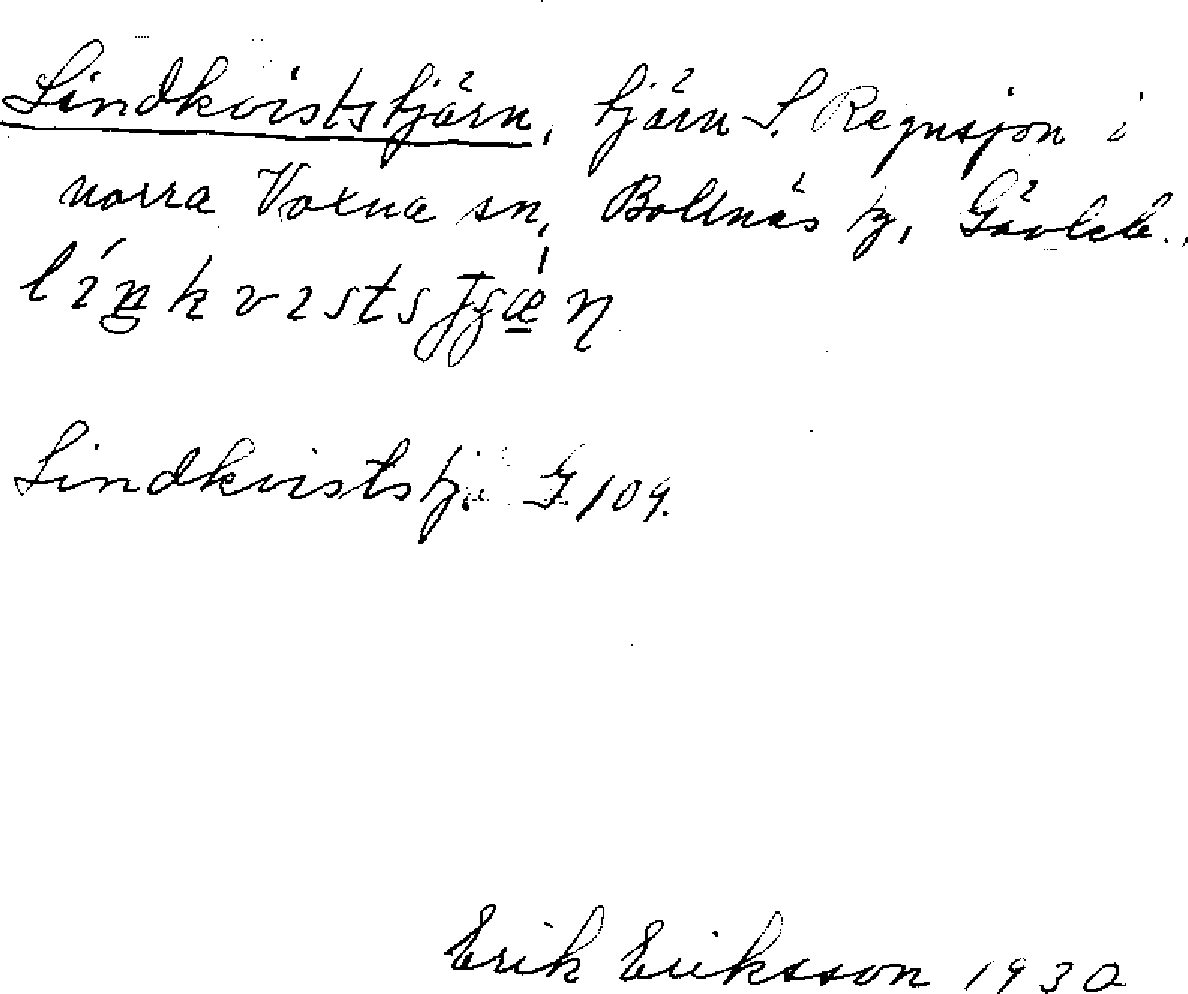 Lindkviststjärn, tjärn S. Regnsjön i
norra Voxna sn, Bollnäs tg, Gävleb.
Lindkviststj. G 109.
Erik Eriksson 1930